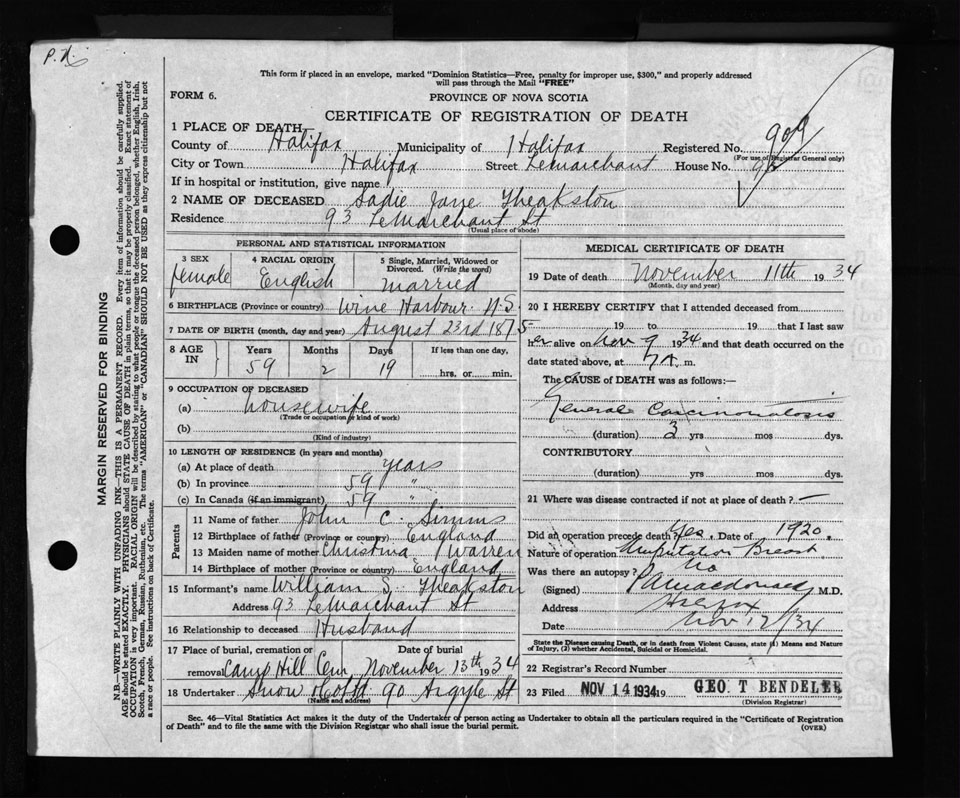 P.N.
This form if placed in an envelope, marked "Dominion Statistics—Free, penalty for improper use, $300," and properly addressed
will pass through the Mail "FREE"
FORM 6.
PROVINCE OF NOVA SCOTIA
CERTIFICATE OF REGISTRATION OF DEATH
1 PLACE OF DEATH
County of Halifax Municipality of Halifax Registered No. 909
(For use of Registrar General only)
City or Town Halifax Street LeMarchant House No. 93
If in hospital or institution, give name
2 NAME OF DECEASED Sadie Jane Theakston
Residence 93 LeMarchant St
(Usual place of abode)
PERSONAL AND STATISTICAL INFORMATION
3 SEX female
4 RACIAL ORIGIN English
5 Single, Married, Widowed or Divorced. (Write the word) married
6 BIRTHPLACE (Province or country) Wine Harbour N.S.
7 DATE OF BIRTH (month, day and year) August 23rd 1875
8 AGE IN Years 59 Months 2 Days 19 If less than one day, hrs. or min.
9 OCCUPATION OF DECEASED
(a) housewife
(Trade or occupation or kind of work)
(b)
(Kind of industry)
10 LENGTH OF RESIDENCE (in years and months)
(a) At place of death years
(b) In province 59 "
(c) In Canada (if an immigrant) 59 "
Parents
11 Name of father John C. Simms
12 Birthplace of father (Province or country) England
13 Maiden name of mother Christina Warren
14 Birthplace of mother (Province or country) England
15 Informant's name William S. Theakston
Address 93 LeMarchant St
16 Relationship to deceased Husband
17 Place of burial, cremation or removal Camp Hill Cem Date of burial November 13th 1934
18 Undertaker Snow & Co Ltd 90 Argyle St
(Name and address)
MEDICAL CERTIFICATE OF DEATH
19 Date of death November 11th 1934
(Month, day and year)
20 I HEREBY CERTIFY that I attended deceased from
19 to 19 that I last saw
her alive on Nov 9 1934 and that death occurred on the
date stated above, at 7 A. m.
The CAUSE of DEATH was as follows:—
General Carcinomatosis
(duration) 3 yrs mos dys.
CONTRIBUTORY
(duration) yrs mos dys.
21 Where was disease contracted if not at place of death? —
Did an operation precede death? Yes. Date of 1920.
Nature of operation Amputation Breast
Was there an autopsy? No
(Signed) Macdonald M.D.
Address Halifax
Date Nov 12/34
State the Disease causing Death, or in death from Violent Causes, state (1) Means and Nature of Injury, (2) whether Accidental, Suicidal or Homicidal.
22 Registrar's Record Number
23 Filed NOV 14 1934 19 GEO. T BENDELER
(Division Registrar)
Sec. 46—Vital Statistics Act makes it the duty of the Undertaker or person acting as Undertaker to obtain all the particulars required in the "Certificate of Registration
of Death" and to file the same with the Division Registrar who shall issue the burial permit.
(OVER)
MARGIN RESERVED FOR BINDING
N.B.—WRITE PLAINLY WITH UNFADING INK—THIS IS A PERMANENT RECORD. Every item of information should be carefully supplied.
AGE should be stated EXACTLY. PHYSICIANS should STATE CAUSE OF DEATH in plain terms, so that it may be properly classified. Exact statement of
OCCUPATION is very important. RACIAL ORIGIN will be described by stating to what people or tongue the deceased person belonged, whether English, Irish,
Scotch, French, German, Russian, Ruthenian, etc. The terms "AMERICAN" or "CANADIAN" SHOULD NOT BE USED as they express citizenship but not
a race or people. See instructions on back of Certificate.